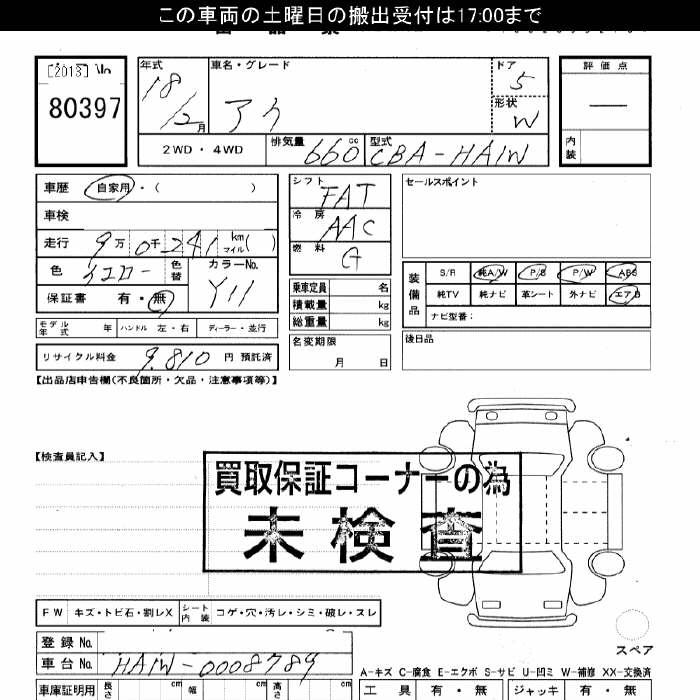 この車両の土曜日の搬出受付は17:00まで
[2013] No
80397
年式
18/12月
車名・グレード
アイ
ドア
5
形状
W
評価点
内装
2WD・4WD
排気量 660 cc
型式 CBA-HA1W
車歴 自家用・( )
車検
走行 9万0千241 km マイル( )
色 イエロー 色替
カラーNo. Y11
保証書 有・無
モデル年式 年 ハンドル 左・右 ディーラー・並行
リサイクル料金 9,810 円 預託済
シフト FAT
冷房 AAC
燃料 G
乗車定員 名
積載量 kg
総重量 kg
名変期限
月 日
セールスポイント
装備品
S/R 純A/W P/S P/W ABS
純TV 純ナビ 革シート 外ナビ エアB
ナビ型番:
後日品
【出品店申告欄(不良箇所・欠品・注意事項等)】
【検査員記入】
買取保証コーナーの為
未検査
FW キズ・トビ石・割レX シート内装 コゲ・穴・汚レ・シミ・破レ・スレ
スペア
登録 No.
車台 No. HA1W-0008789
A-キズ C-腐食 E-エクボ S-サビ U-凹ミ W-補修 XX-交換済
車庫証明用 長さ cm 幅 cm 高さ cm
工具 有・無 ジャッキ 有・無